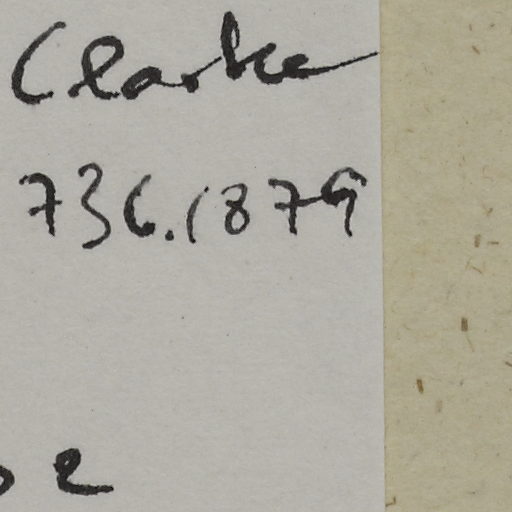 Clarke
736.1879
2